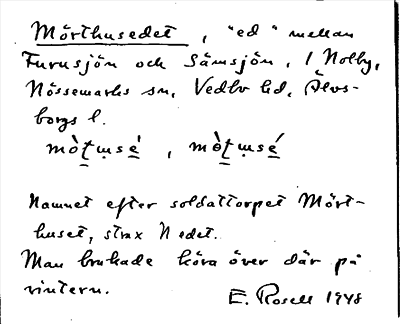 Mörthusedet, "ed" mellan
Furusjön och Sämsjön, i Nolby,
Nössemarks sn, Vedbo hd, Älvs-
borgs l.
mò̠ṭɯsé̠, mò̠ṭɯsé̠
Namnet efter soldattorpet Mört-
huset, strax N edet.
Man brukade köra över där på
vintern.
E. Rosell 1948